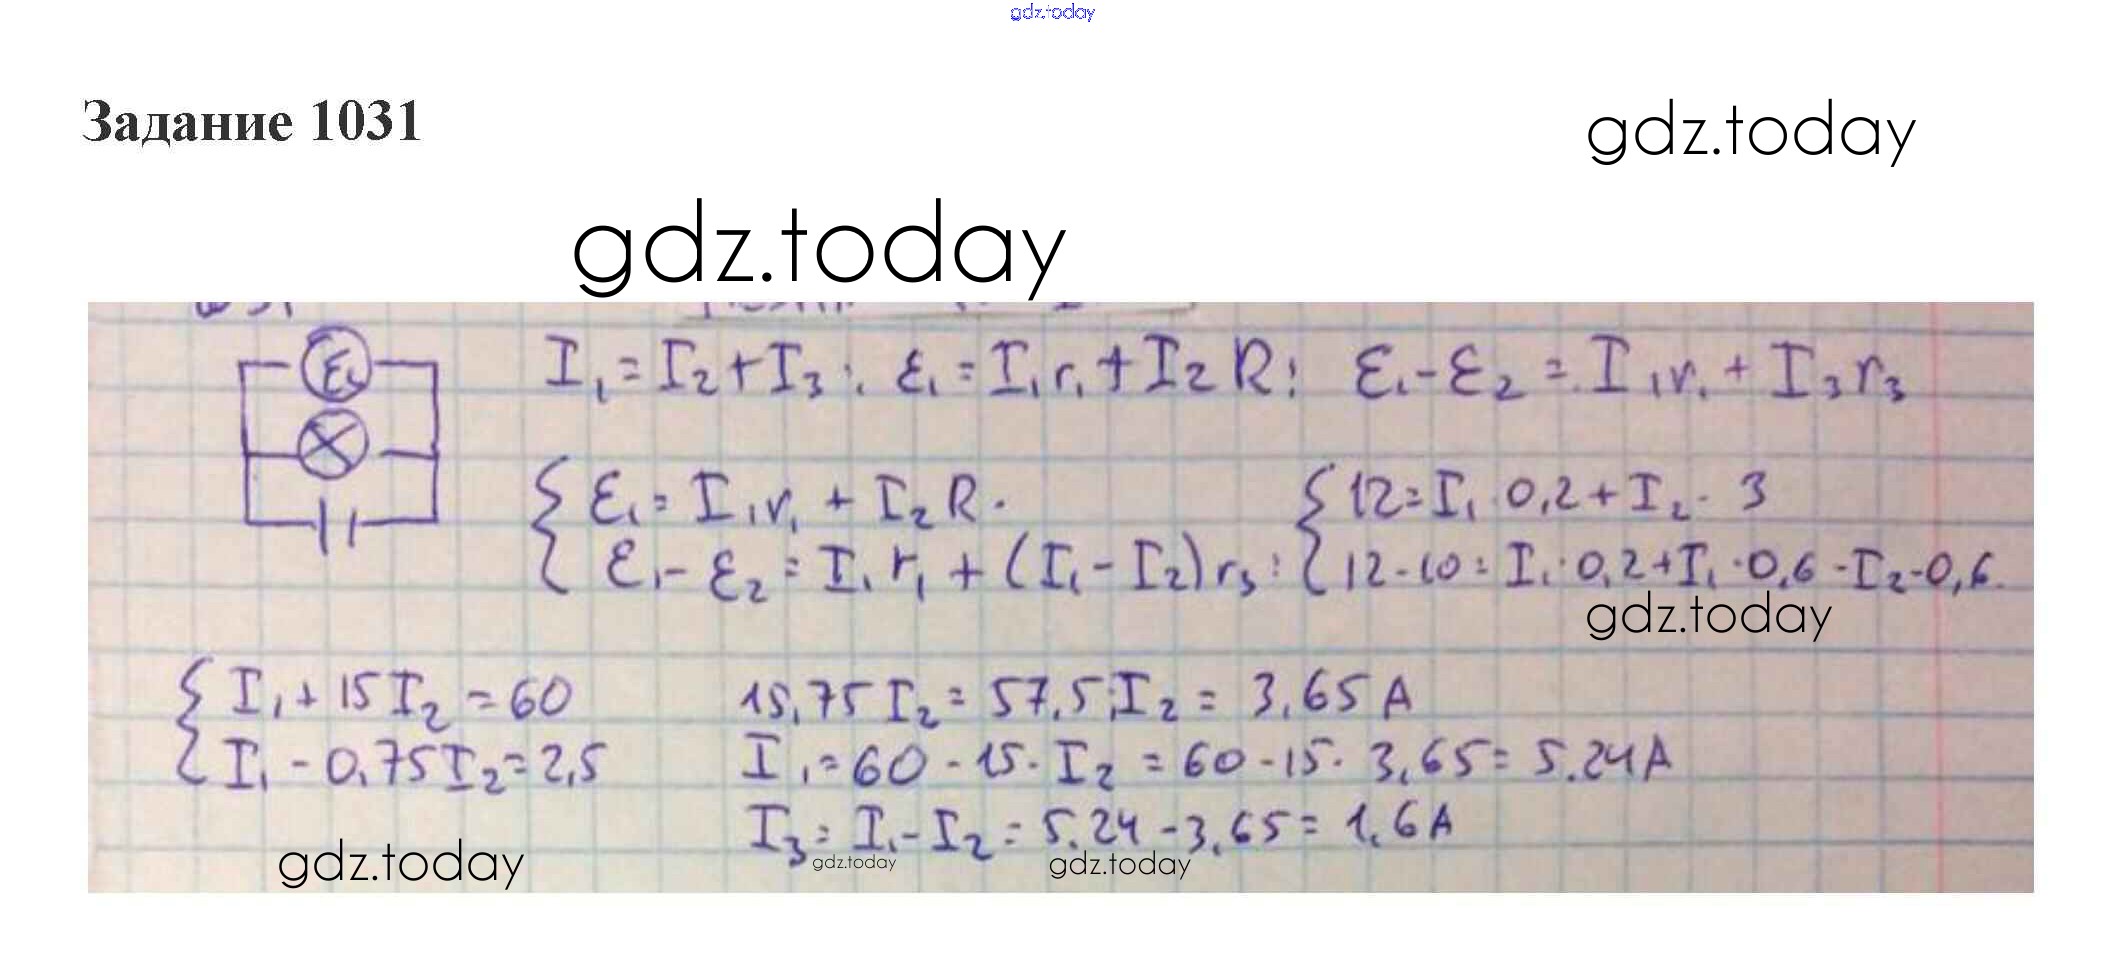 gdz.today
Задание 1031
gdz.today
gdz.today
ε₁
I₁ = I₂ + I₃; ε₁ = I₁r₁ + I₂R; ε₁ - ε₂ = I₁r₁ + I₃r₃
{ ε₁ = I₁r₁ + I₂R. { 12 = I₁·0,2 + I₂·3
{ ε₁ - ε₂ = I₁r₁ + (I₁ - I₂)r₃; { 12-10 = I₁·0,2+I₁·0,6-I₂·0,6.
gdz.today
{ I₁ + 15I₂ = 60 15,75I₂ = 57,5; I₂ = 3,65 A
{ I₁ - 0,75I₂ = 2,5 I₁ = 60 - 15·I₂ = 60 - 15·3,65 = 5.24A
I₃ = I₁ - I₂ = 5.24 - 3,65 = 1,6A
gdz.today gdz.today gdz.today